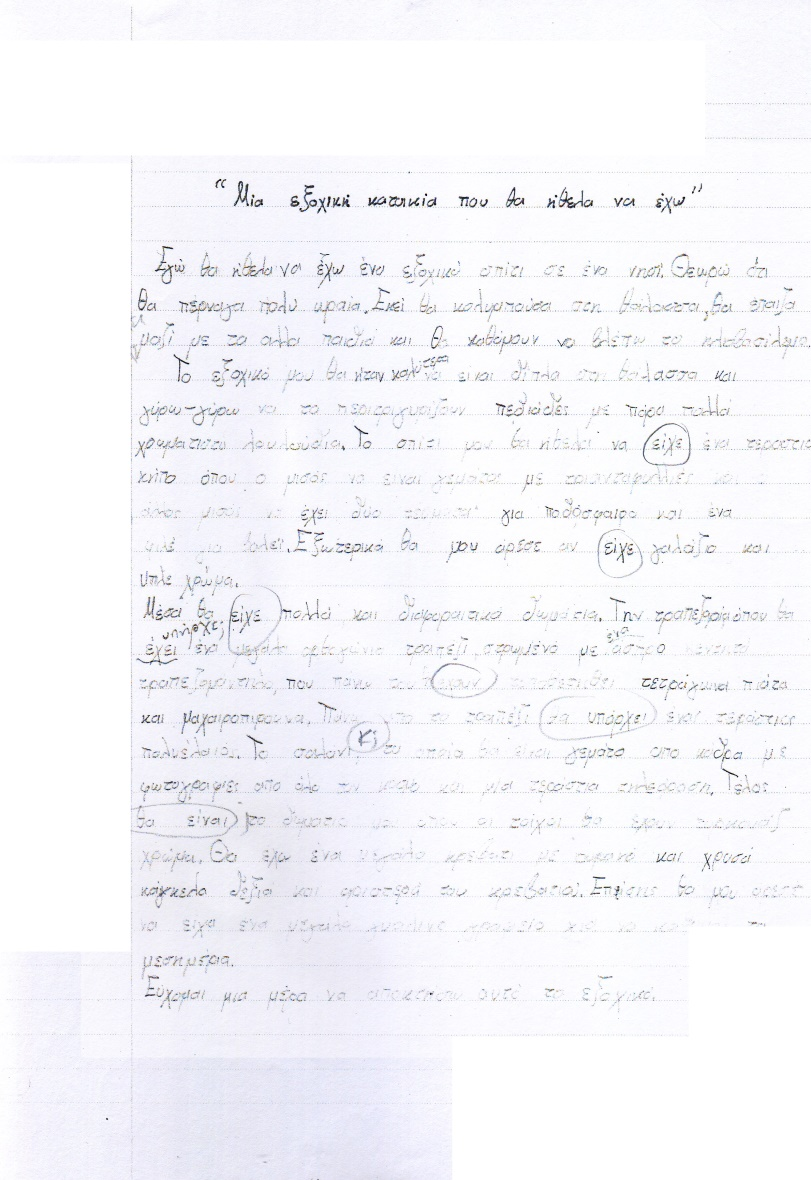 “Μία εξοχική κατικία που θα ήθελα να έχω”
Εγώ θα ήθελα να έχω ένα εξοχικό σπίτι σε ένα νησί. Θεωρώ ότι
θα πέρναγα πολυ ωραία. Εκεί θα κολυμπούσα στη θάλασσα, θα έπαιζα
μαζί με τα αλλα παιδιά και θα καθόμουν να βλέπω το ηλιοβασίλεμα.
Το εξοχικό μου θα ήταν καλύτερα να ειναι δίπλα στη θαλασσα και
γύρω-γύρω να το περιτριγυρίζουν πεδιάδες με πάρα πολλά
χρωματιστα λουλούδια. Το σπίτι μου θα ήθελα να είχε ένα τεράστιο
κήπο όπου ο μισός να ειναι γεμάτος με τριανταφυλλιές και ο
άλλος μισός να έχει δυο τέρματα για ποδόσφαιρο και ένα
φιλέ για βόλεϊ. Εξωτερικά θα μου άρεσε αν είχε γαλάζιο και
μπλε χρώμα.
Μέσα θα είχε πολλά και διαφορετικά δωμάτια. Την τραπεζαρία όπου θα
υπήρχε;
έχει ένα μεγάλο ορθογώνιο τραπέζι στρωμένο με ένα άσπρο κεντητό
τραπεζομάντιλο, που πάνω του έχουν τοποθετηθεί τετράγωνα πιάτα
και μαχαιροπίρουνα. Πάνω απο το τραπέζι θα υπάρχει ένας τεράστιος
πολυέλαιος. Το σαλόνι, το οποίο θα είναι γεμάτο απο κάδρα με
φωτογραφιες απο όλο τον κόσμο και μία τεράστια τηλεόραση. Τέλος
θα είναι το δωμάτιο μου οπου οι τοίχοι θα έχουν τιρκουάζ
χρώμα. Θα έχω ένα μεγάλο κρεβάτι με και χρυσά
κάγκελα δεξιά και αριστερά του κρεβατιού. Επίσης θα μου άρεσε
να είχα ένα μεγάλο γραφείο να
μεσημέρια.
Εύχομαι μια μέρα να αποκτήσω αυτό το εξοχικό.